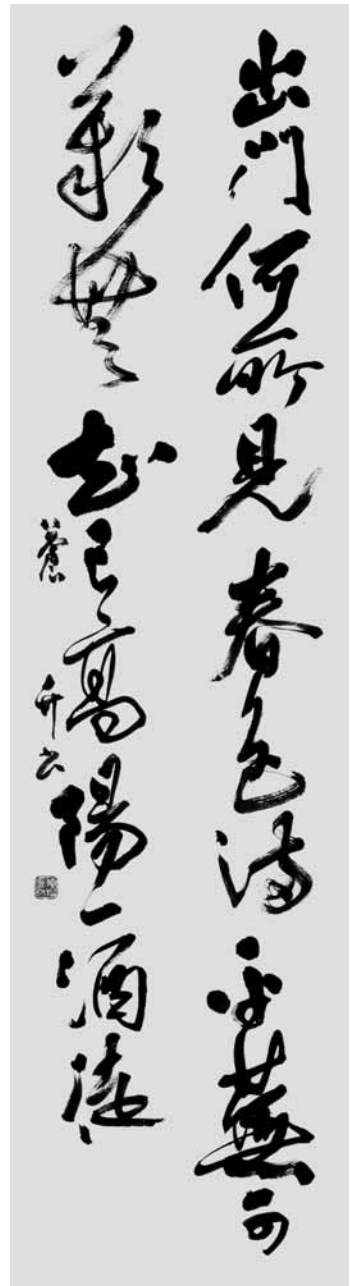 出門何所見春色滿平蕪可
歎無知己高陽一酒徒